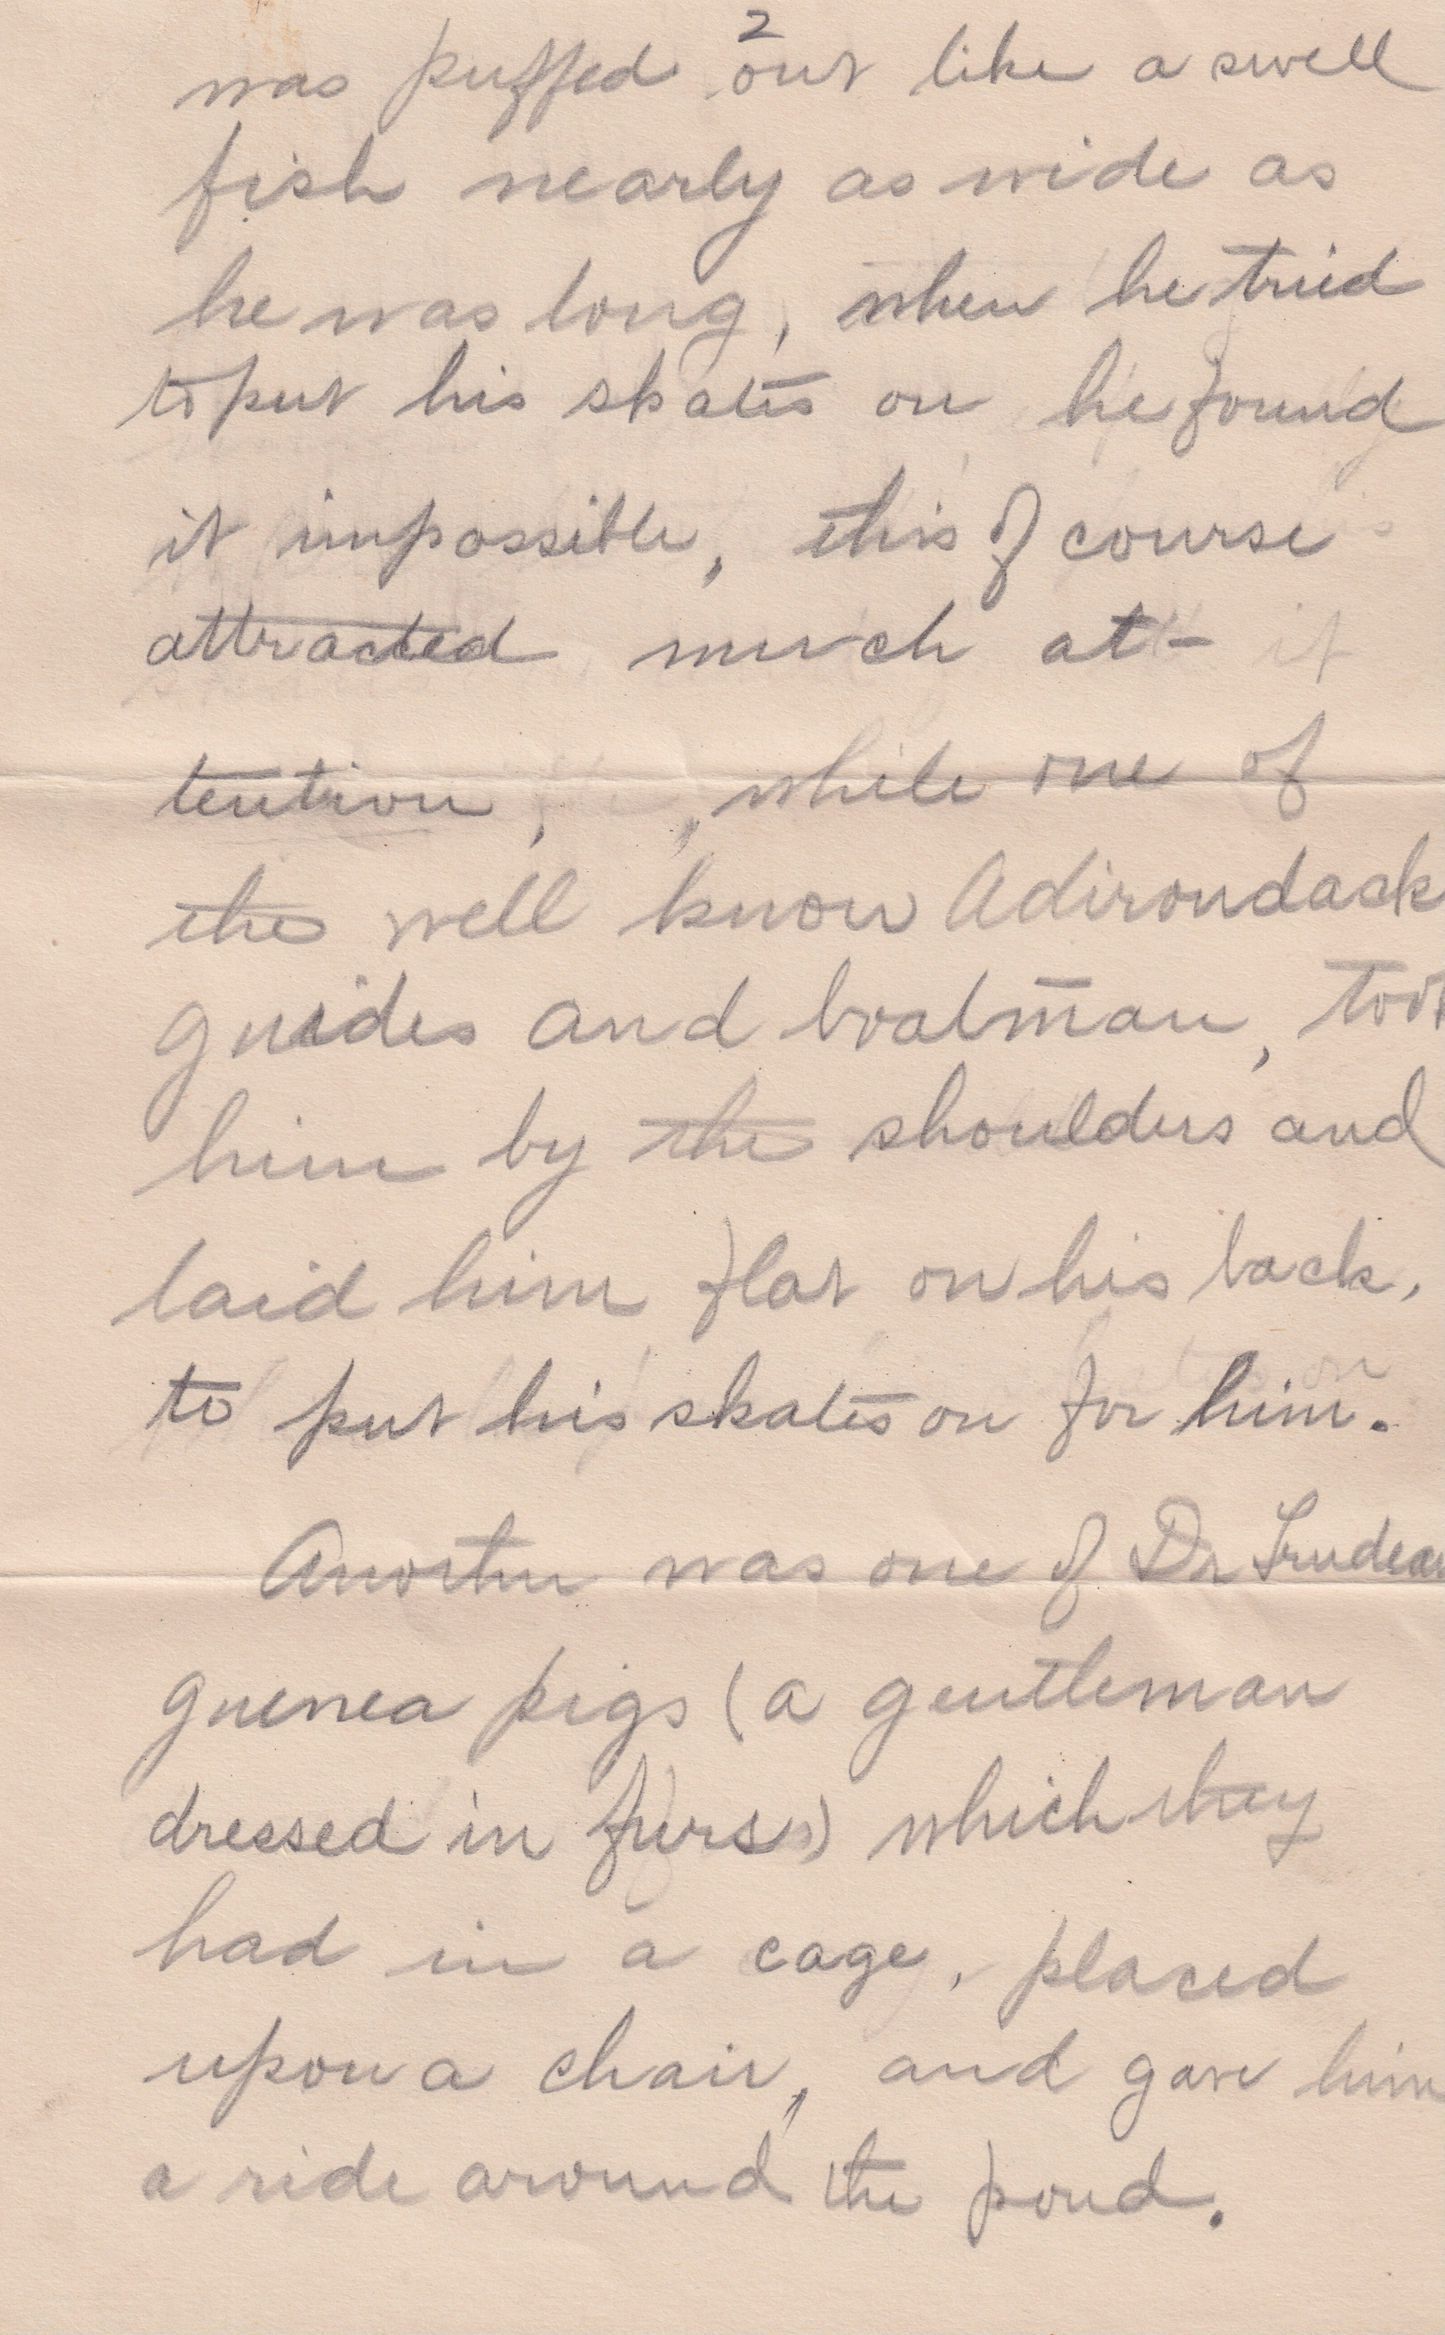 2
was puffed out like a swell
fish nearly as wide as
he was long, when he tried
to put his skates on he found
it impossible, this of course
attracted much at-
tention, while one of
the well know Adirondack
guides and boatman, took
him by the shoulders and
laid him flat on his back,
to put his skates on for him.
Another was one of Dr Trudeau
guenea pigs (a gentleman
dressed in furs) which they
had in a cage, placed
upon a chair, and gave him
a ride around the pond.